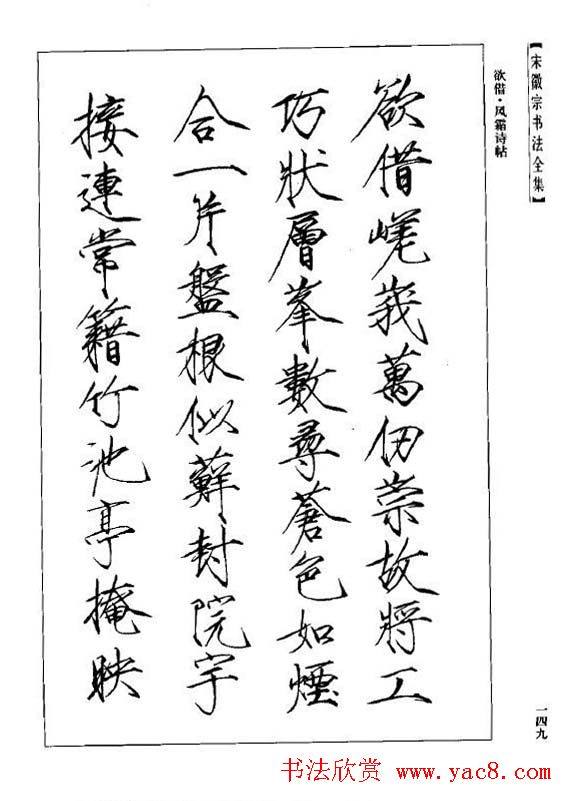 【宋徽宗书法全集】
欲借·风霜诗帖
欲借嵯峩萬仞崇故將工
巧狀層峯數尋蒼色如煙
合一片盤根似蘚封院宇
接連常籍竹池亭掩映
一四九
书法欣赏 www.yac8.com